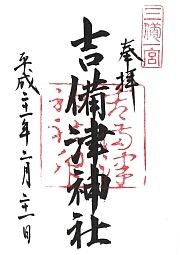 三備一宮
奉拝
吉備津神社
平成二十一年二月二十一日